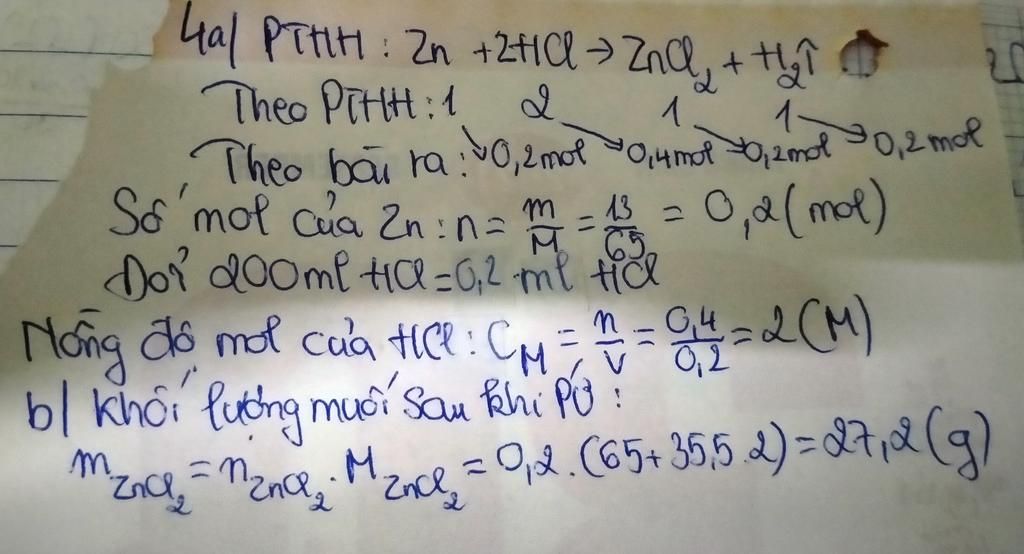 4a/ PTHH: Zn + 2HCl → ZnCl₂ + H₂↑
Theo PTHH: 1 2 1 1
Theo bài ra: 0,2mol 0,4mol 0,2mol 0,2 mol
Số mol của Zn: n = m/M = 13/65 = 0,2 (mol)
Đổi 200ml HCl = 0,2 ml HCl
Nồng độ mol của HCl: C_M = n/V = 0,4/0,2 = 2 (M)
b/ Khối lượng muối sau khi PỨ:
m_ZnCl₂ = n_ZnCl₂ . M_ZnCl₂ = 0,2 . (65 + 35,5 . 2) = 27,2 (g)